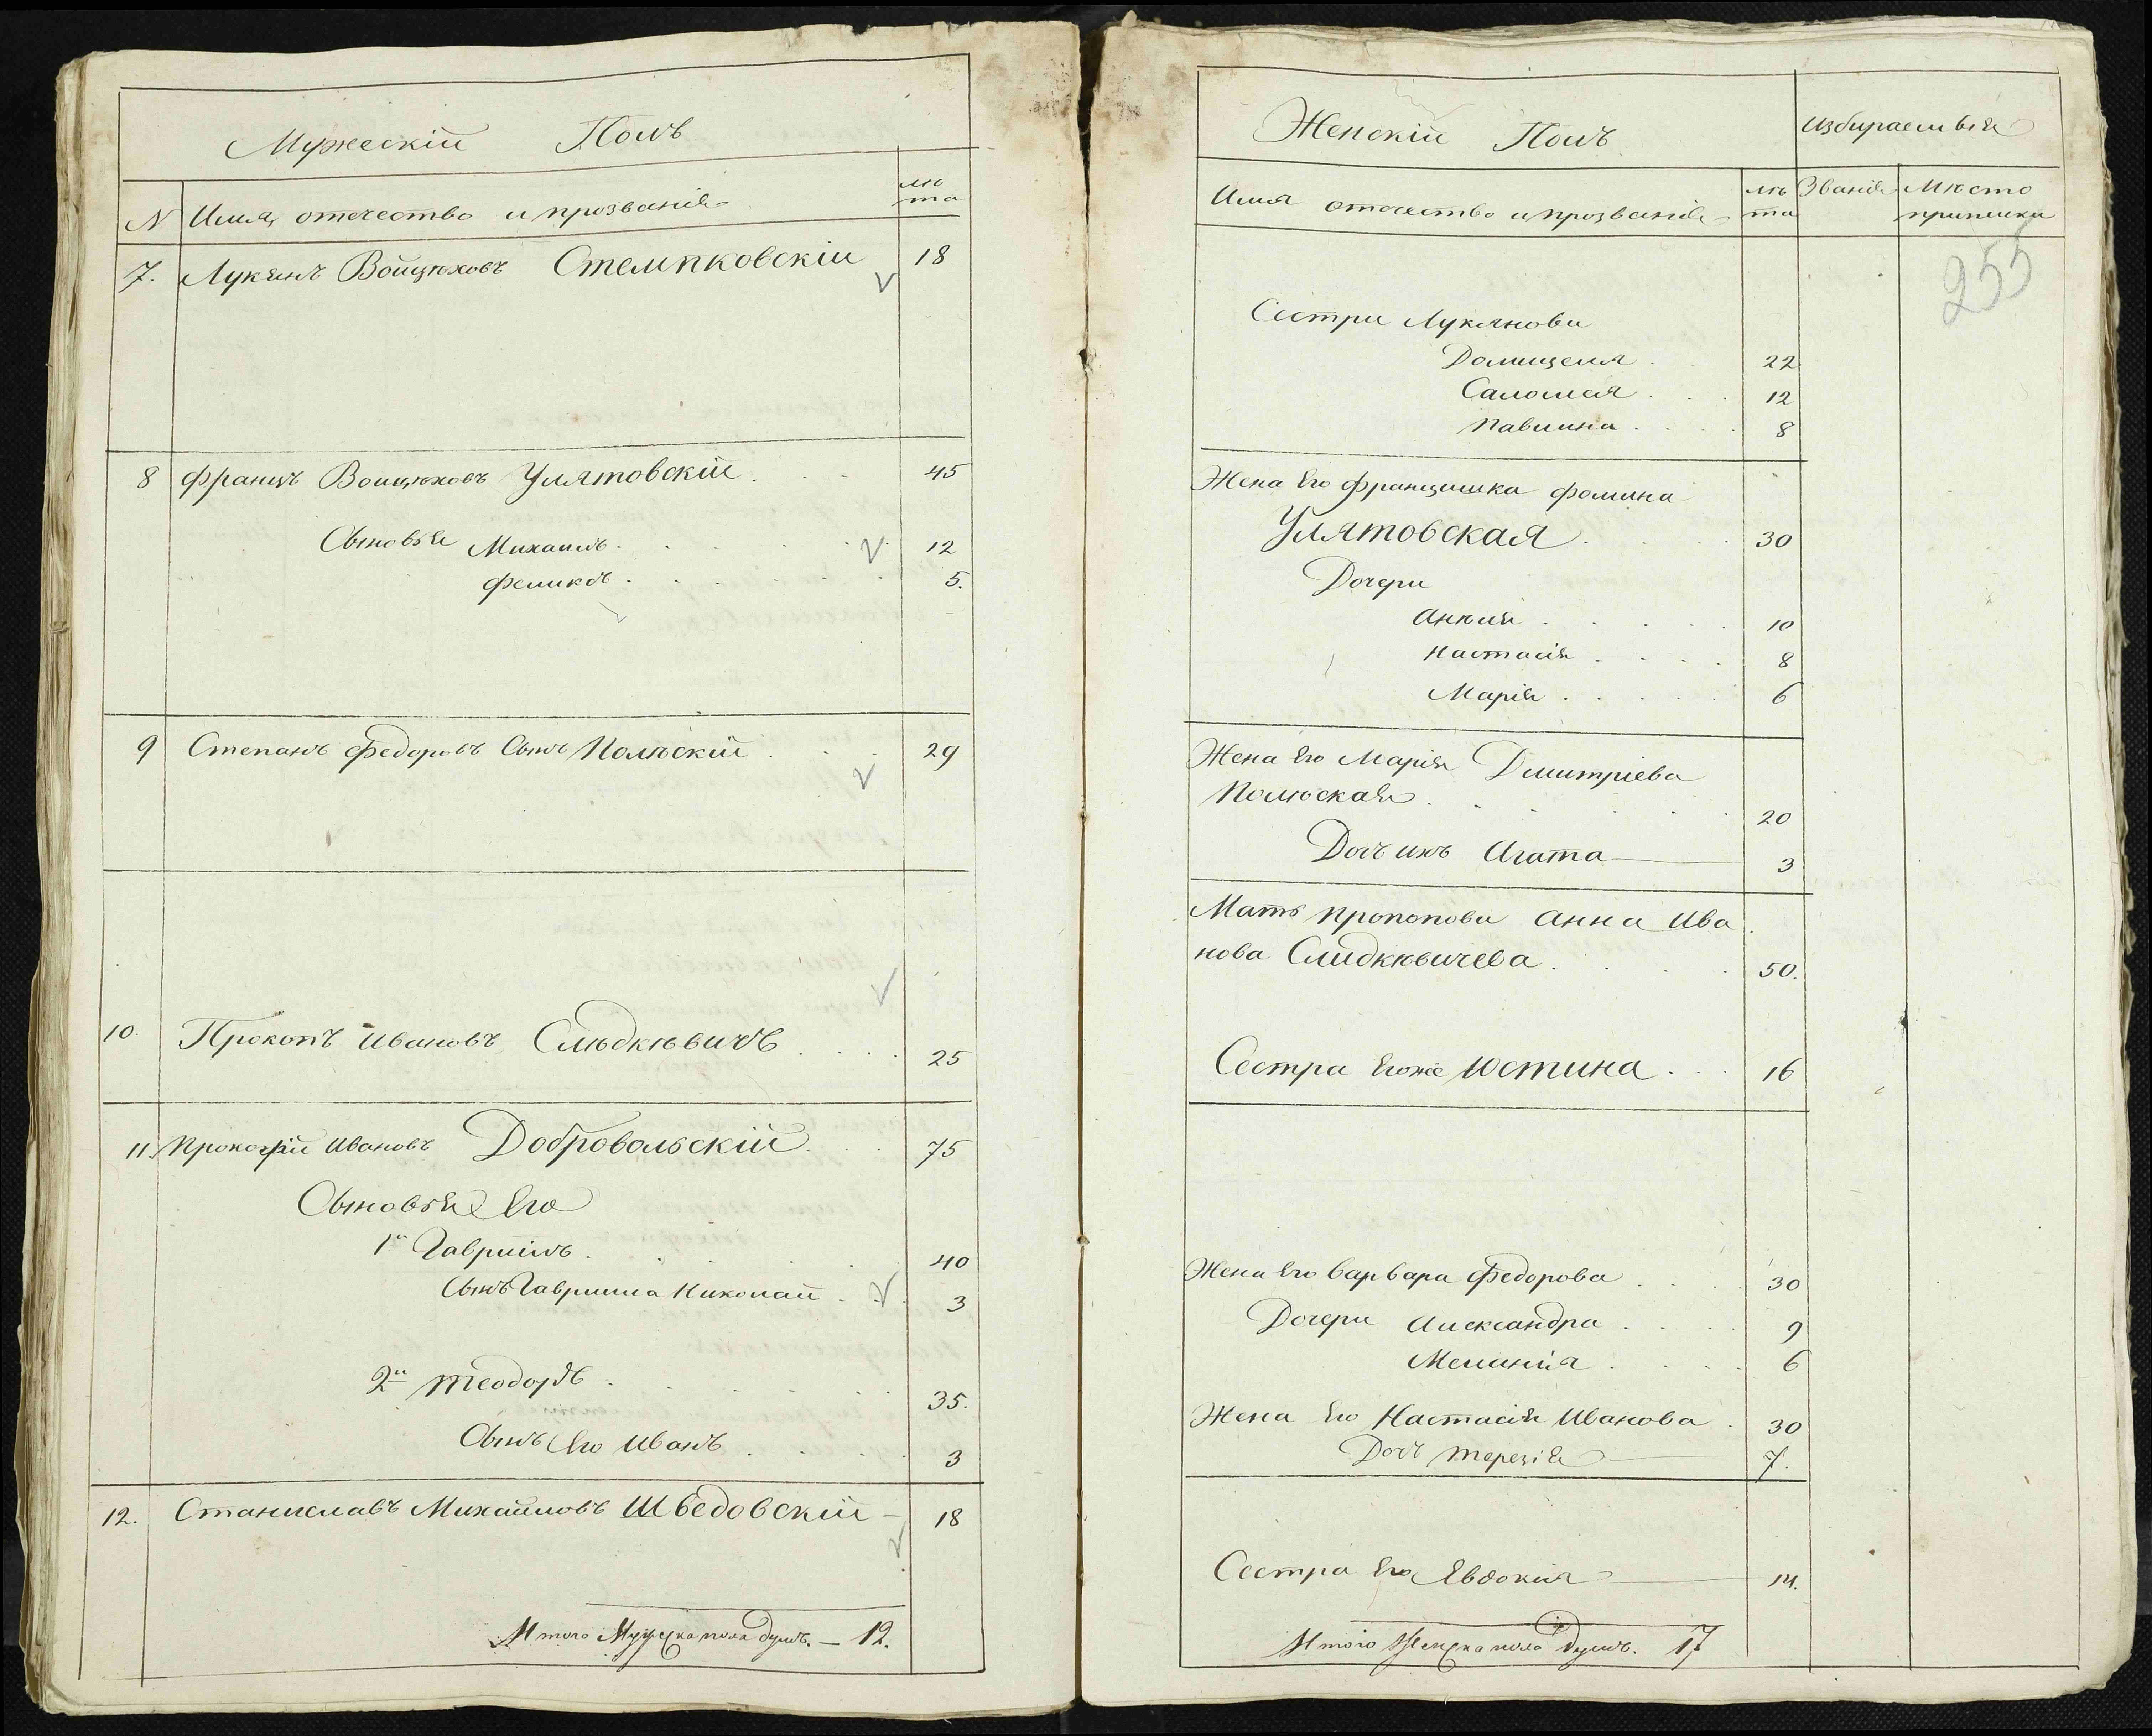 Мужескій Полъ
N Имя, отчество и прозваніе лѣ
та
7. Лукянъ Войцѣховъ Стемпковскій 18
8 Францъ Войцѣховъ Улятовскій 45
Сыновья Михаилъ 12
Феликсъ 5.
9 Степанъ Федоровъ Сынъ Полѣскій 29
10. Прокопъ Ивановъ Слѣдкѣвичъ 25
11. Прокофій Ивановъ Добровольскій 75
Сыновья Его
1й Гавріилъ 40
Сынъ Гавриила Николай 3
2й Теодоръ 35.
Сынъ Его Иванъ 3
12. Станиславъ Михайловъ Шведовскій 18
Итого Мужеска пола душъ. — 12.
Женскій Полъ Избираемыя
Имя отчество и прозваніе лѣ
та Званія Мѣсто
приписки
255
Сестри Лукянови
Домицеля 22
Саломея 12
Павлина 8
Жена Его Францишка Фомина
Улятовская 30
Дочери
Анѣля 10
Настасія 8
Марія 6
Жена Его Марія Дмитріева
Полѣская 20
Дочъ ихъ Агата 3
Мать Прокопова Анна Ива
нова Слидкѣвичева 50.
Сестра Егоже Юстина 16
Жена Его Варвара Федорова 30
Дочери Александра 9
Меланія 6
Жена Его Настасія Иванова 30
Дочъ Терезія 7.
Сестра Его Евдокия 14.
Итого Женска пола душъ. 17